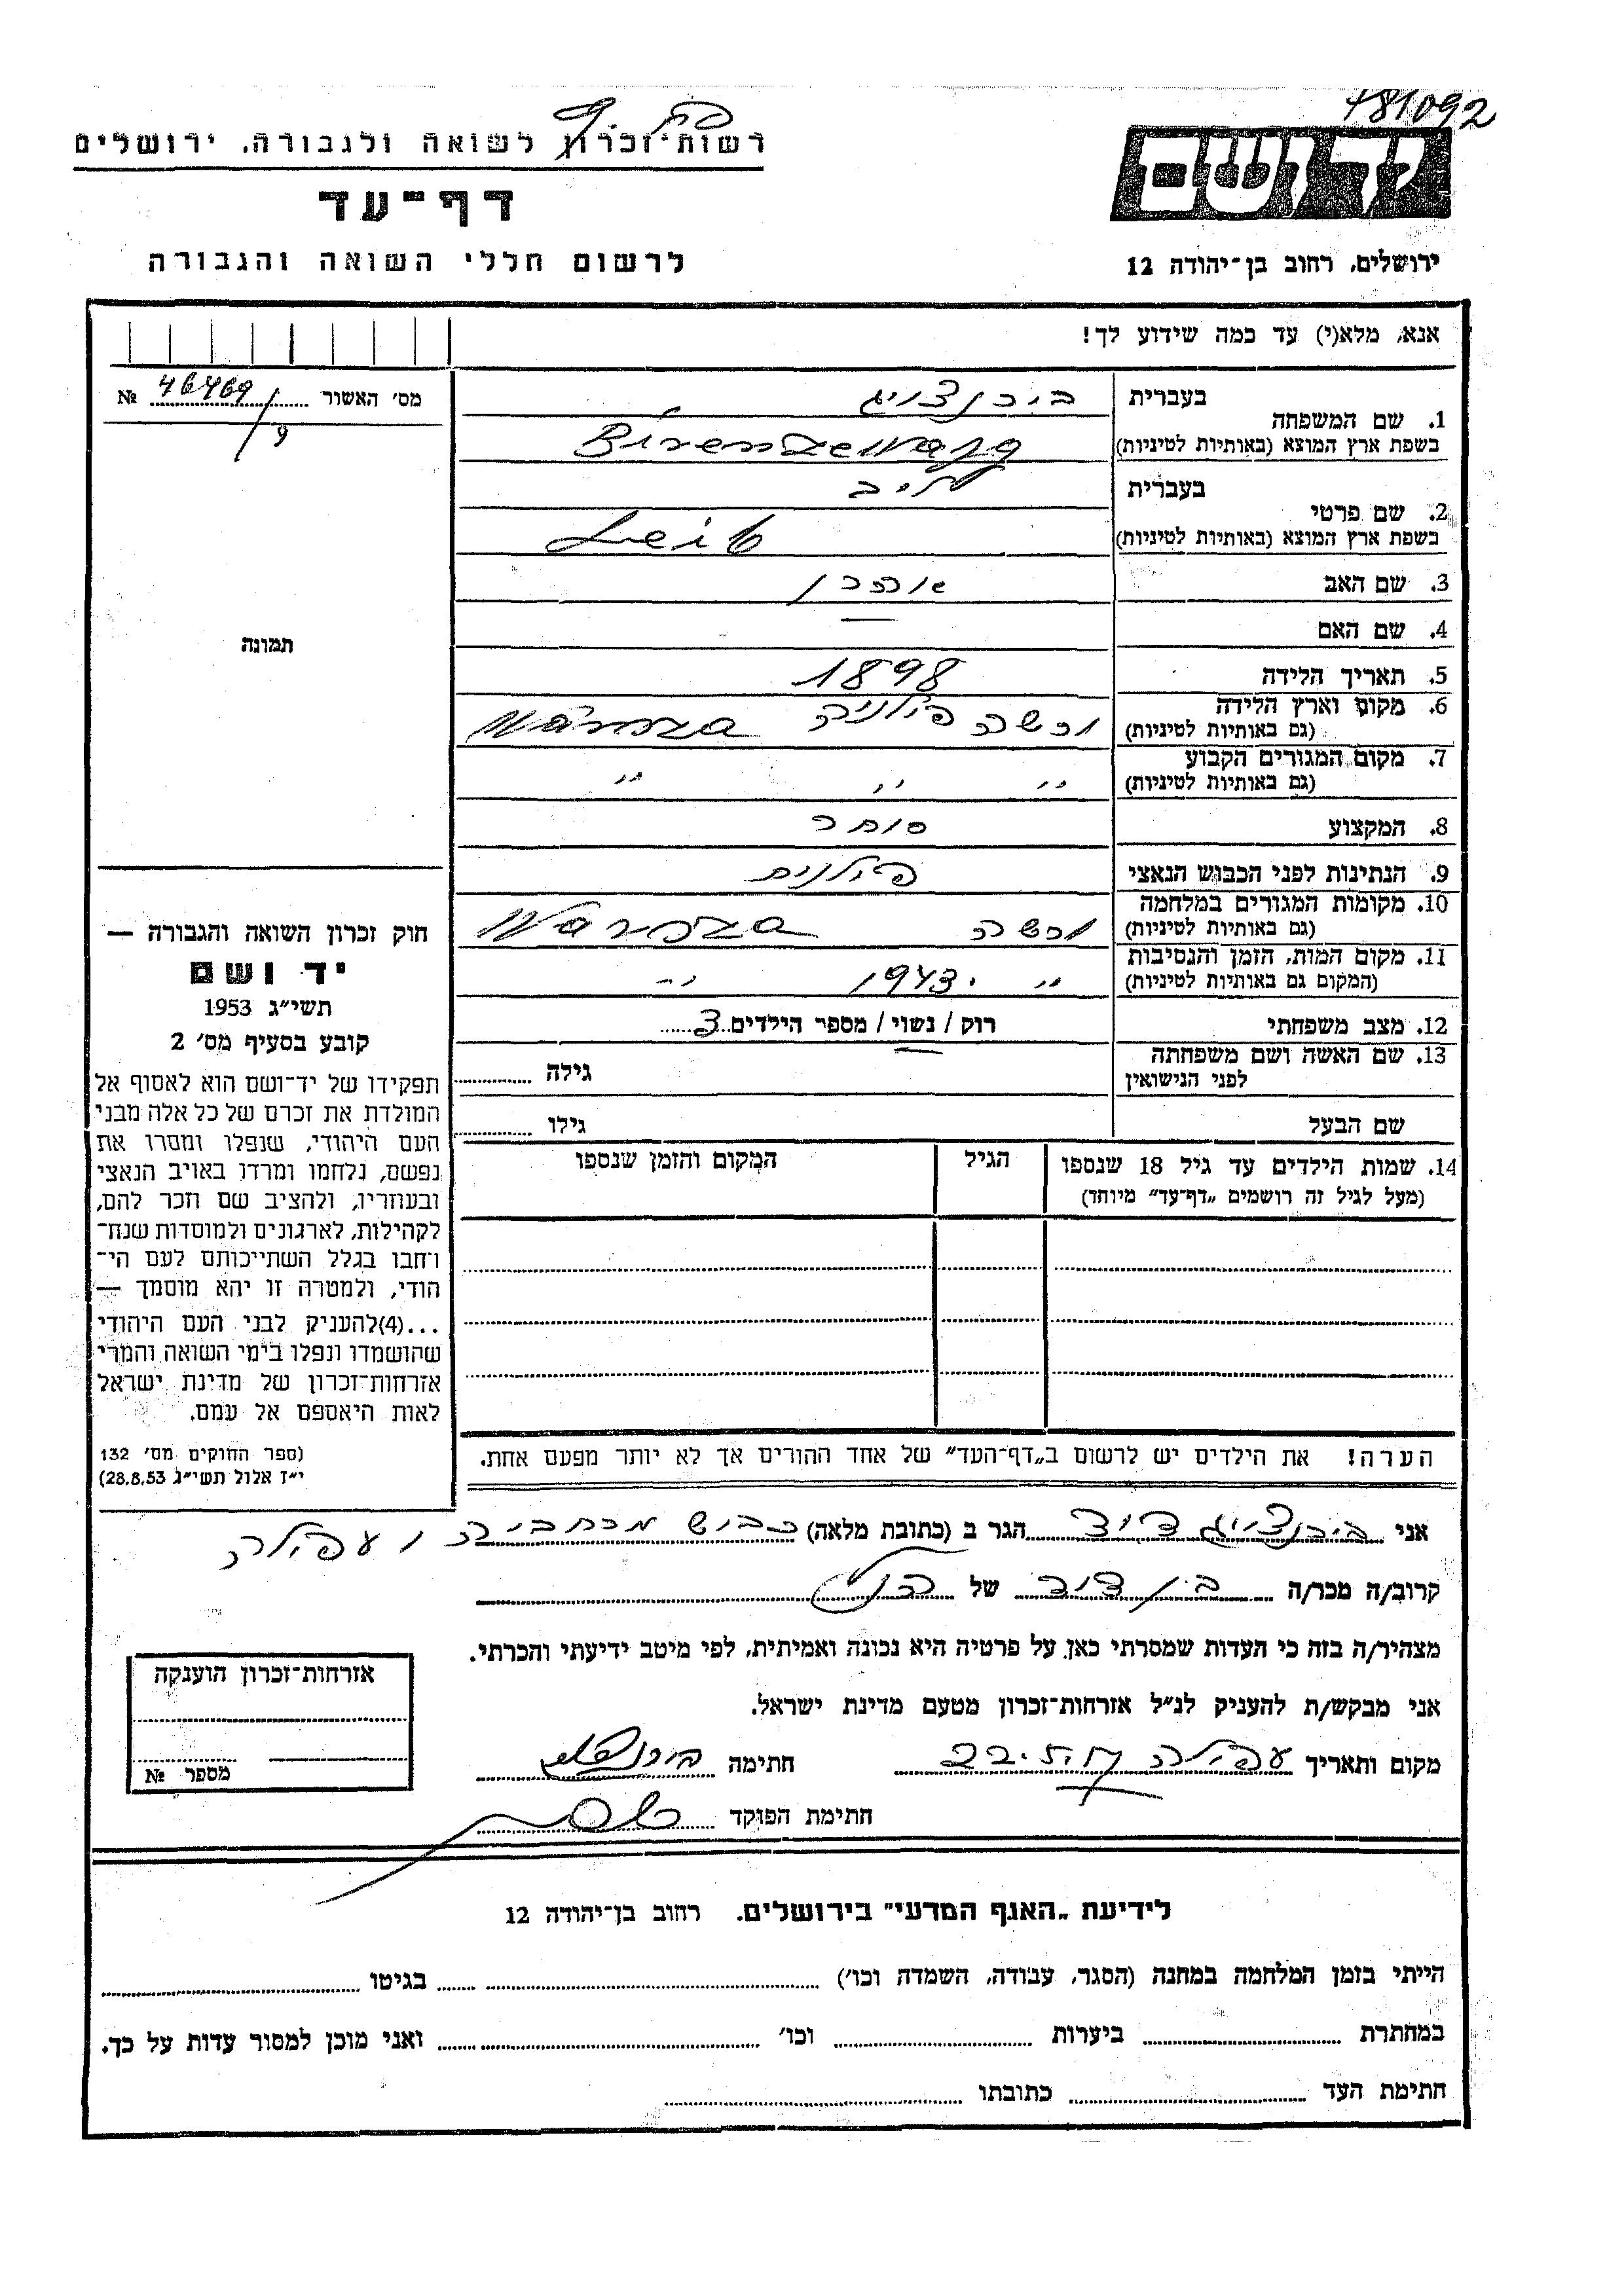 781092
רשות־זכרון לשואה ולגבורה, ירושלים
דף־עד
לרשום חללי השואה והגבורה
יד ושם
ירושלים, רחוב בן־יהודה 12
אנא, מלא(י) עד כמה שידוע לך!
מס׳ האשור 46469/9 №
תמונה
1. שם המשפחה
בעברית בירנצויג
בשפת ארץ המוצא (באותיות לטיניות) Birenzwajg
2. שם פרטי
בעברית ליב
בשפת ארץ המוצא (באותיות לטיניות) Leib
3. שם האב אהרן
4. שם האם —
5. תאריך הלידה 1898
6. מקום וארץ הלידה ורשה פולניה Warsza
(גם באותיות לטיניות)
7. מקום המגורים הקבוע
(גם באותיות לטיניות) ״ ״ ״
8. המקצוע סוחר
9. הנתינות לפני הכבוש הנאצי פולנית
10. מקומות המגורים במלחמה
(גם באותיות לטיניות) ורשה Warsza
11. מקום המות, הזמן והנסיבות
(המקום גם באותיות לטיניות) ״ 1943. ״
12. מצב משפחתי רוק / נשוי / מספר הילדים 3
13. שם האשה ושם משפחתה
לפני הנישואין גילה
שם הבעל גילו
14. שמות הילדים עד גיל 18 שנספו הגיל המקום והזמן שנספו
(מעל לגיל זה רושמים „דף־עד״ מיוחד)
הערה! את הילדים יש לרשום ב„דף־העד״ של אחד ההורים אך לא יותר מפעם אחת.
חוק זכרון השואה והגבורה —
יד ושם
תשי״ג 1953
קובע בסעיף מס׳ 2
תפקידו של יד־ושם הוא לאסוף אל
המולדת את זכרם של כל אלה מבני
העם היהודי, שנפלו ומסרו את
נפשם, נלחמו ומרדו באויב הנאצי
ובעוזריו, ולהציב שם וזכר להם,
לקהילות, לארגונים ולמוסדות שנח־
רבו בגלל השתייכותם לעם הי־
הודי, ולמטרה זו יהא מוסמך —
...(4) להעניק לבני העם היהודי
שהושמדו ונפלו בימי השואה והמרי
אזרחות־זכרון של מדינת ישראל
לאות היאספם אל עמם.
(ספר החוקים מס׳ 132
י״ז אלול תשי״ג 28.8.53)
אני בירנצויג דוד הגר ב (כתובת מלאה) קבוש מרחביה ו עפולה
קרוב/ה מכר/ה בן דוד של הנ״ל
מצהיר/ה בזה כי העדות שמסרתי כאן על פרטיה היא נכונה ואמיתית, לפי מיטב ידיעתי והכרתי.
אני מבקש/ת להעניק לנ״ל אזרחות־זכרון מטעם מדינת ישראל.
מקום ותאריך עפולה חתימה
חתימת הפוקד
אזרחות־זכרון הוענקה
מספר №
לידיעת „האגף המדעי״ בירושלים. רחוב בן־יהודה 12
הייתי בזמן המלחמה במחנה (הסגר, עבודה, השמדה וכו׳) בגיטו
במחתרת ביערות וכו׳ ואני מוכן למסור עדות על כך.
חתימת העד כתובתו